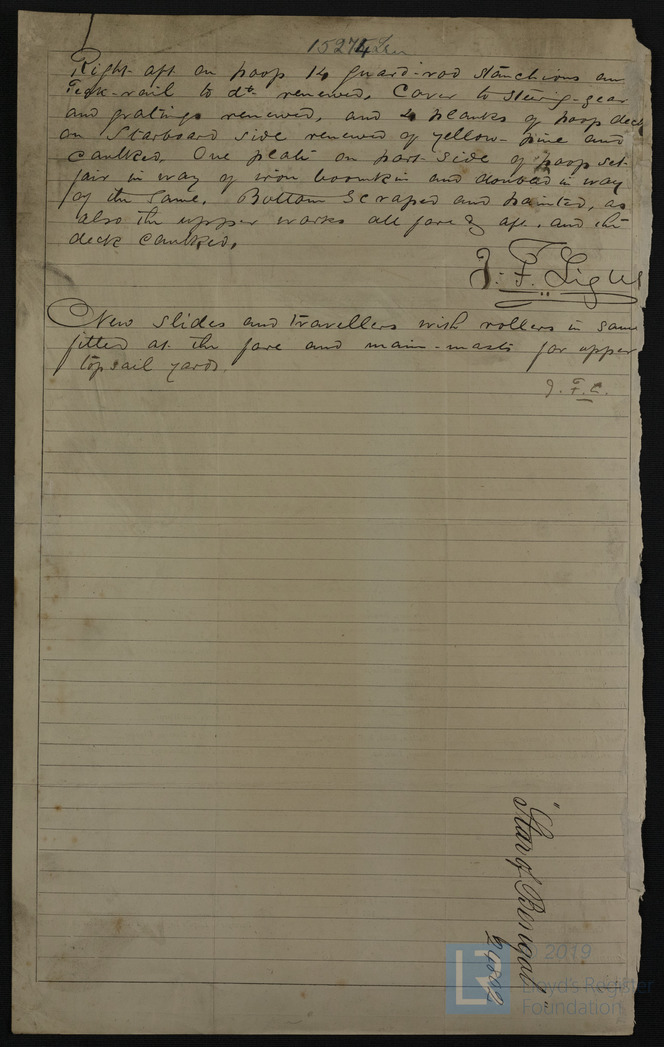 15274 Lon
Right aft on poop 14 guard-rod stanchions and
Teak-rail to do. renewed, Cover to steering-gear
and gratings renewed, and 4 planks of poop deck
on Starboard side renewed of yellow-pine and
caulked, One plate on port side of poop set
fair in way of iron boomkin and doubled in way
of the same. Bottom Scraped and painted, as
also the upper works all fore & aft, and the
deck caulked,
J. F. Light
New slides and travellers with rollers in same
fitted at the fore and main-masts for upper
topsail yards
J. F. L.
"Star of Bengal"
© 2019
Lloyd's Register
Foundation
LR